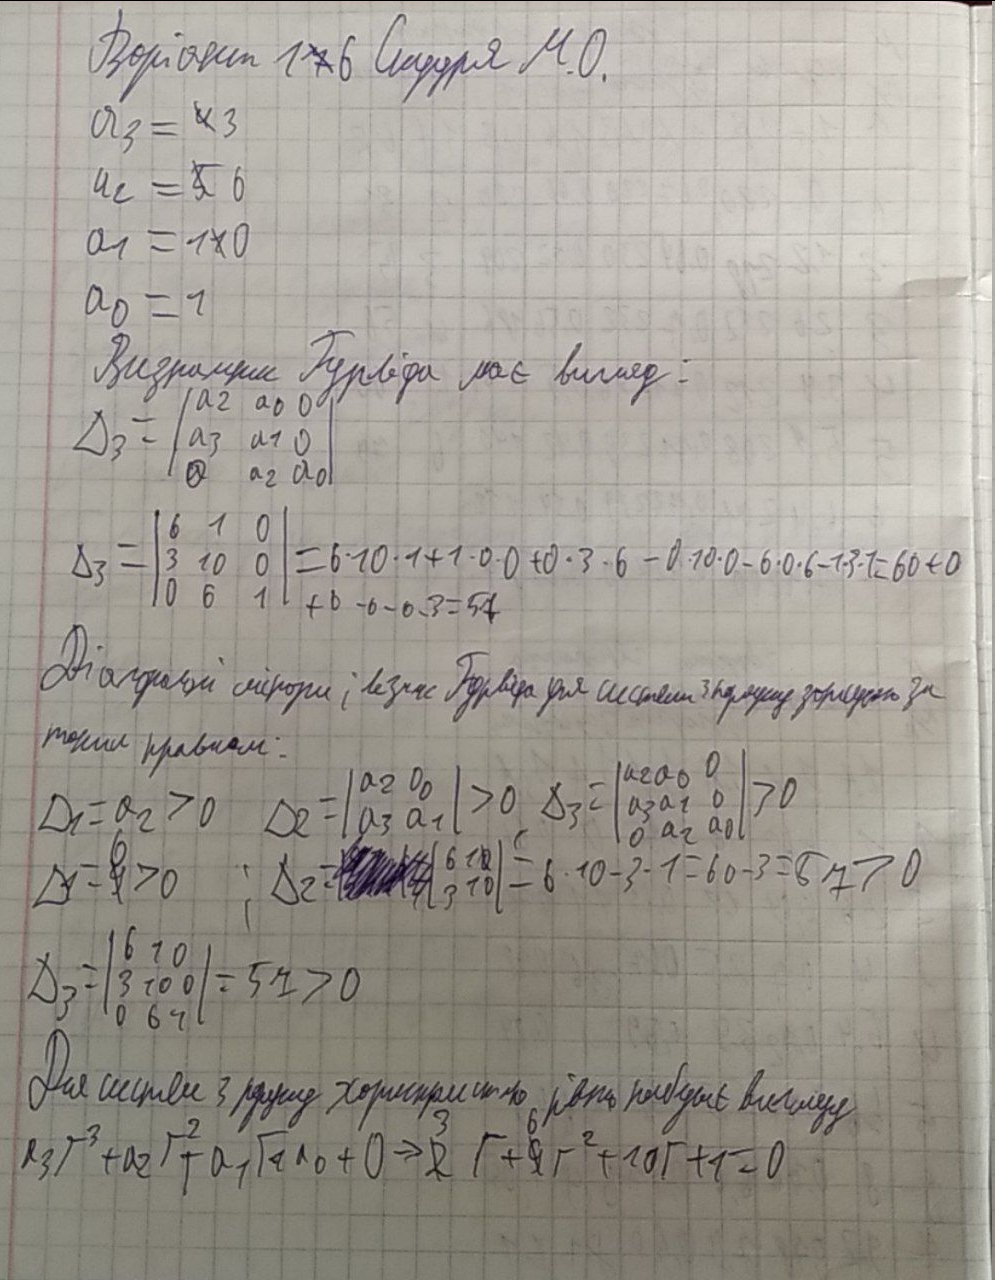 Варіант 16 Снідуря М.О.
a3 = 3
a2 = 6
a1 = 10
a0 = 1
Визначник Гурвіца має вигляд:
Δ3 = |a2 a0 0|
|a3 a1 0|
|0 a2 a0|
Δ3 = |6 1 0|
|3 10 0| = 6·10·1+1·0·0+0·3·6-0·10·0-6·0·6-1·3·1=60+0
|0 6 1| +0-0-0-3=57
Діагональні мінори і визнач Гурвіца для системи 3 порядку за
таким правилом:
Δ1=a2>0 Δ2=|a2 a0| >0, Δ3=|a2 a0 0| >0
|a3 a1| |a3 a1 0|
|0 a2 a0|
Δ1=6>0 ; Δ2=|6 1| = 6·10-3·1=60-3=57>0
|3 10|
Δ3=|6 1 0|
|3 10 0| = 57>0
|0 6 1|
Для систем 3 порядку характеристичне рівнь набуває вигляду
a3Γ³+a2Γ²+a1Γ+a0+0→3Γ+6Γ²+10Γ+1=0